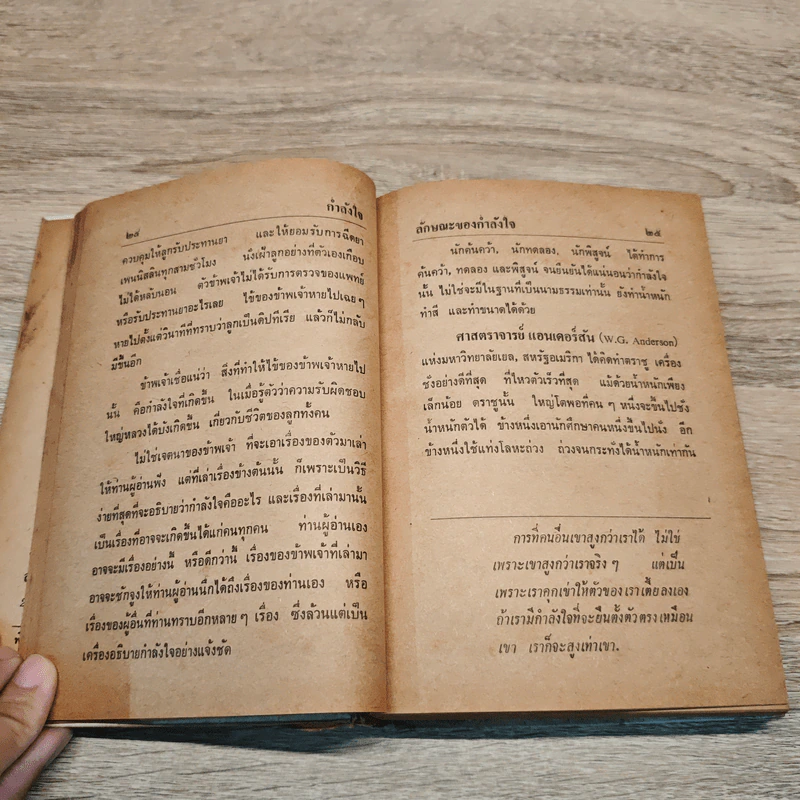 ๒๔ กำลังใจ
ควบคุมให้ลูกรับประทานยา และให้ยอมรับการฉีดยา
เพนนิสลินทุกสามชั่วโมง นั่งเฝ้าลูกอย่างที่ตัวเองเกือบ
ไม่ได้หลับนอน ตัวข้าพเจ้าไม่ได้รับการตรวจของแพทย์
หรือรับประทานยาอะไรเลย ไข้ของข้าพเจ้าหายไปเฉยๆ
หายไปตั้งแต่วินาทีที่ทราบว่าลูกเป็นดิปทีเรีย แล้วก็ไม่กลับ
มีขึ้นอีก
ข้าพเจ้าเชื่อแน่ว่า สิ่งที่ทำให้ไข้ของข้าพเจ้าหายไป
นั้น คือกำลังใจที่เกิดขึ้น ในเมื่อรู้ตัวว่าความรับผิดชอบ
ใหญ่หลวงได้บังเกิดขึ้น เกี่ยวกับชีวิตของลูกทั้งคน
ไม่ใช่เจตนาของข้าพเจ้า ที่จะเอาเรื่องของตัวมาเล่า
ให้ท่านผู้อ่านฟัง แต่ที่เล่าเรื่องข้างต้นนั้น ก็เพราะเป็นวิธี
ง่ายที่สุดที่จะอธิบายว่ากำลังใจคืออะไร และเรื่องที่เล่ามานั้น
เป็นเรื่องที่อาจจะเกิดขึ้นได้แก่คนทุกคน ท่านผู้อ่านเอง
อาจจะมีเรื่องอย่างนี้ หรือดีกว่านี้ เรื่องของข้าพเจ้าที่เล่ามา
อาจจะชักจูงให้ท่านผู้อ่านนึกได้ถึงเรื่องของท่านเอง หรือ
เรื่องของผู้อื่นที่ท่านทราบอีกหลายๆ เรื่อง ซึ่งล้วนแต่เป็น
เครื่องอธิบายกำลังใจอย่างแจ้งชัด
ลักษณะของกำลังใจ ๒๕
นักค้นคว้า, นักทดลอง, นักพิสูจน์ ได้ทำการ
ค้นคว้า, ทดลอง และพิสูจน์ จนยืนยันได้แน่นอนว่ากำลังใจ
นั้น ไม่ใช่จะมีในฐานที่เป็นนามธรรมเท่านั้น ยังทำน้ำหนัก
ทำสี และทำขนาดได้ด้วย
ศาสตราจารย์ แอนเดอร์สัน (W.G. Anderson)
แห่งมหาวิทยาลัยเยล, สหรัฐอเมริกา ได้คิดทำตราชู เครื่อง
ชั่งอย่างดีที่สุด ที่ไหวตัวเร็วที่สุด แม้ด้วยน้ำหนักเพียง
เล็กน้อย ตราชูนั้น ใหญ่โตพอที่คนๆ หนึ่งจะขึ้นไปชั่ง
น้ำหนักตัวได้ ข้างหนึ่งเอานักศึกษาคนหนึ่งขึ้นไปนั่ง อีก
ข้างหนึ่งใช้แท่งโลหะถ่วง ถ่วงจนกระทั่งได้น้ำหนักเท่ากัน
การที่คนอื่นเขาสูงกว่าเราได้ ไม่ใช่
เพราะเขาสูงกว่าเราจริงๆ แต่เป็น
เพราะเราคุกเข่าให้ตัวของเราเตี้ยลงเอง
ถ้าเรามีกำลังใจที่จะยืนตั้งตัวตรงเหมือน
เขา เราก็จะสูงเท่าเขา.